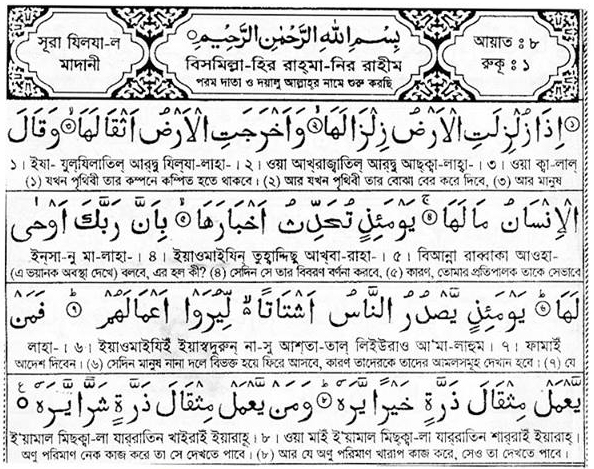 সূরা যিলযা-ল
মাদানী
بِسْمِ اللهِ الرَّحْمٰنِ الرَّحِيْمِ
বিসমিল্লা-হির রাহ্‌মা-নির রাহীম
পরম দাতা ও দয়ালু আল্লাহ্‌র নামে শুরু করছি
আয়াত : ৮
রুকূ : ১
اِذَا زُلْزِلَتِ الْاَرْضُ زِلْزَالَهَا ۙ وَاَخْرَجَتِ الْاَرْضُ اَثْقَالَهَا ۙ وَقَالَ
১। ইযা- যুল্‌যিলাতিল্ আর্‌দ্বু যিল্‌যা-লাহা-। ২। ওয়া আখ্‌রাজ্বাতিল্ আর্‌দ্বু আছ্‌ক্বা-লাহা-। ৩। ওয়া ক্বা-লাল্
(১) যখন পৃথিবী তার কম্পনে কম্পিত হতে থাকবে। (২) আর যখন পৃথিবী তার বোঝা বের করে দিবে, (৩) আর মানুষ
الْاِنْسَانُ مَا لَهَا ۚ يَوْمَئِذٍ تُحَدِّثُ اَخْبَارَهَا ۙ بِاَنَّ رَبَّكَ اَوْحٰى
ইন্‌সা-নু মা-লাহা-। ৪। ইয়াওমাইযিন্ তুহাদ্দিছু আখ্‌বা-রাহা-। ৫। বিআন্না রাব্বাকা আওহা-
(এ ভয়ানক অবস্থা দেখে) বলবে, এর হল কী? (৪) সেদিন সে তার বিবরণ বর্ণনা করবে, (৫) কারণ, তোমার প্রতিপালক তাকে সেভাবে
لَهَا ؕ يَوْمَئِذٍ يَّصْدُرُ النَّاسُ اَشْتَاتًا ۙ لِّيُرَوْا اَعْمَالَهُمْ ؕ فَمَنْ
লাহা-। ৬। ইয়াওমাইযিই ইয়াছ্‌দুরুন্ না-সু আশ্‌তা-তাল্ লিইউরাও আ'মা-লাহুম। ৭। ফামাই
আদেশ দিবেন। (৬) সেদিন মানুষ নানা দলে বিভক্ত হয়ে ফিরে আসবে, কারণ তাদেরকে তাদের আমলসমূহ দেখান হবে। (৭) যে
يَّعْمَلْ مِثْقَالَ ذَرَّةٍ خَيْرًا يَّرَهٗ ؕ وَمَنْ يَّعْمَلْ مِثْقَالَ ذَرَّةٍ شَرًّا يَّرَهٗ
ই'য়ামাল মিছ্‌ক্বা-লা যার্‌রাতিন খাইরাই ইয়ারাহ্‌। ৮। ওয়া মাই ই'য়ামাল মিছ্‌ক্বা-লা যার্‌রাতিন শার্‌রাই ইয়ারাহ্‌।
অণু পরিমাণ নেক কাজ করে তা সে দেখতে পাবে। (৮) আর যে অণু পরিমাণ খারাপ কাজ করে, সেও তা দেখতে পাবে।